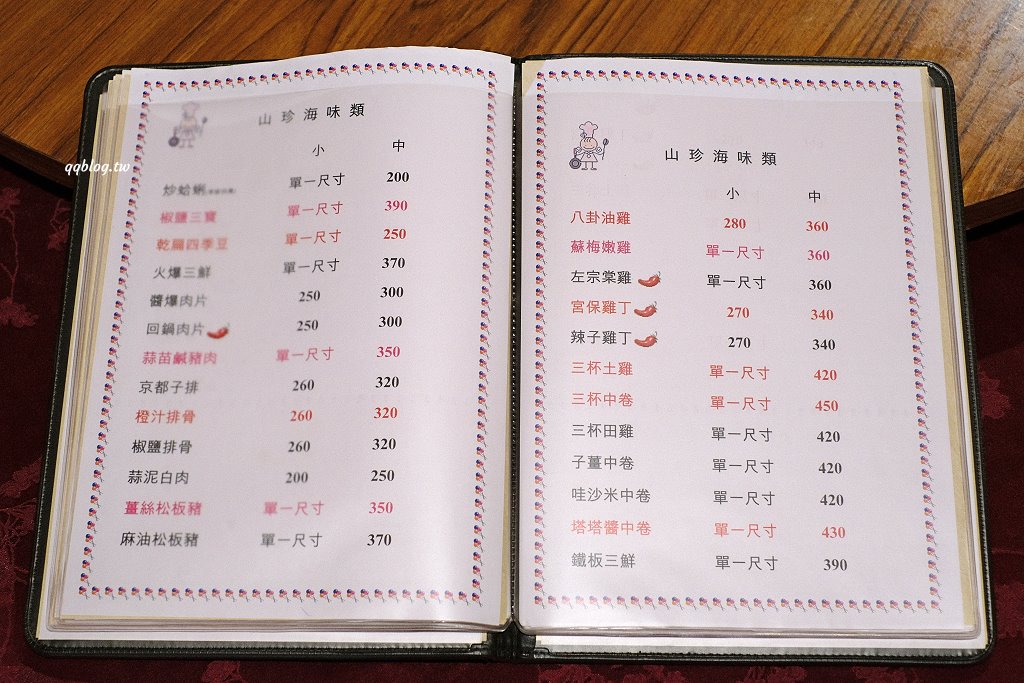 qqblog.tw
山珍海味類
小 中
炒蛤蜊 單一尺寸 200
椒鹽三寶 單一尺寸 390
乾扁四季豆 單一尺寸 250
火爆三鮮 單一尺寸 370
醬爆肉片 250 300
回鍋肉片 250 300
蒜苗鹹豬肉 單一尺寸 350
京都子排 260 320
橙汁排骨 260 320
椒鹽排骨 260 320
蒜泥白肉 200 250
薑絲松板豬 單一尺寸 350
麻油松板豬 單一尺寸 370
山珍海味類
小 中
八卦油雞 280 360
蘇梅嫩雞 單一尺寸 360
左宗棠雞 單一尺寸 360
宮保雞丁 270 340
辣子雞丁 270 340
三杯土雞 單一尺寸 420
三杯中卷 單一尺寸 450
三杯田雞 單一尺寸 420
子薑中卷 單一尺寸 420
哇沙米中卷 單一尺寸 420
塔塔醬中卷 單一尺寸 430
鐵板三鮮 單一尺寸 390